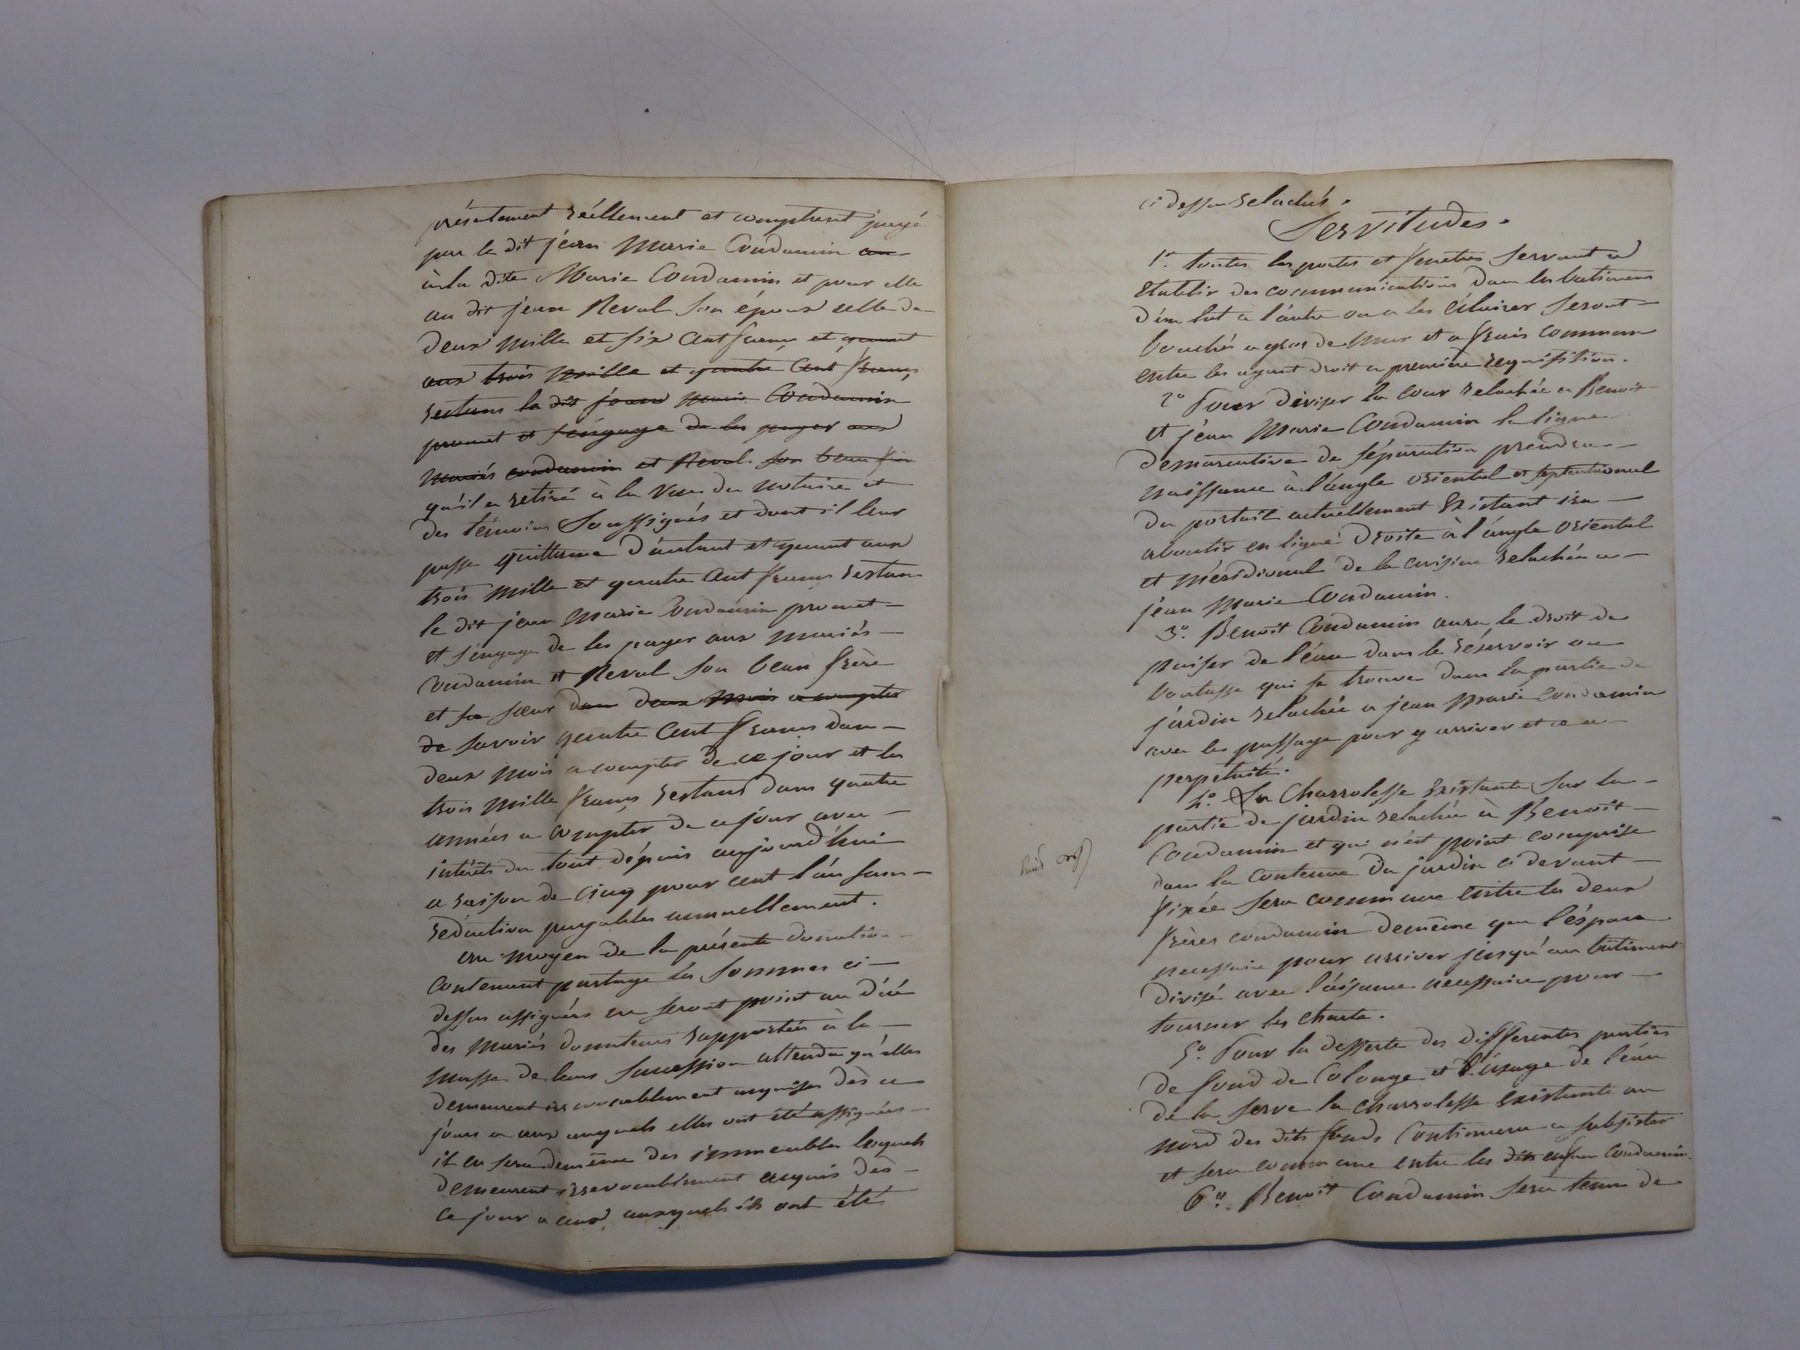 présentement réellement et comptant payé
par le dit jean Marie Condamin con
à la dite Marie Condamin et pour elle
au dit jean Reval son époux celle de
deux mille et six cent francs et quant
aux trois mille et quatre cent francs
restans le dit jean Marie Condamin
promet et s'engage de les payer aux
mariés condamin et Reval son beau frère
qu'il a retiré à la vue du notaire et
des témoins soussignés et dont il leur
passe quittance d'autant et quant aux
trois mille et quatre cent francs restans
le dit jean Marie Condamin promet
et s'engage de les payer aux mariés
Condamin et Reval son beau frère
et sa sœur dans deux mois a compter
de savoir quatre cent francs dans
deux mois a compter de ce jour et les
trois mille francs restans dans quatre
années a compter de ce jour avec
intérêts du tout dépuis aujourd'hui
a raison de cinq pour cent l'an sans
réduction payables annuellement.
au moyen de la présente donation
contenant partage les sommes ci
dessus assignées ne seront point au décé
des mariés donateurs rapportées à la
masse de leurs succession attendu qu'elles
demeurent irrevocablement acquises dès ce
jour a ceux auquels elles ont été assignées
il en sera demême des immeubles lesquels
demeurent irrevocablement acquis dès
ce jour a ceux auxquels ils ont été
ci dessus relachés.
Servitudes.
1.º toutes les portes et fenetres servant a
établir des communications dans les batimens
d'un lot a l'autre ou a les éclairer seront
bouchés a gros de mur et a frais commun
entre les ayant droit a première requisition.
2.º Pour diviser la cour relachée a Benoit
et jean Marie Condamin la ligne
demarcative de séparation prendra
naissance à l'angle oriental et septentrional
du portail actuellement existant ira
aboutir en ligne droite à l'angle oriental
et méridional de la cuisine relachée a
jean Marie Condamin.
3.º Benoit Condamin aura le droit de
puiser de l'éau dans le réservoir ou
boutasse qui se trouve dans la partie de
jardin relachée a jean Marie Condamin
avec les passage pour y arriver et ce a
perpétuité.
4.º La Charrolesse existante sur la
partie de jardin relachée à Benoit
Condamin et qui n'est point comprise
dans la contenue du jardin ci devant
fixée sera commune entre les deux
frères condamin demême que l'éspace
necessaire pour arriver jusqu'au batiment
divisé avec l'aisance necessaire pour
tourner les charts.
5.º Pour la desserte des differentes parties
de fond de Colonge et l'úsage de l'éau
de la serve la charrolesse existante au
nord des dits fonds continuera a subsister
et sera commune entre les dits enfans Condamin
6.º Benoit Condamin sera tenu de